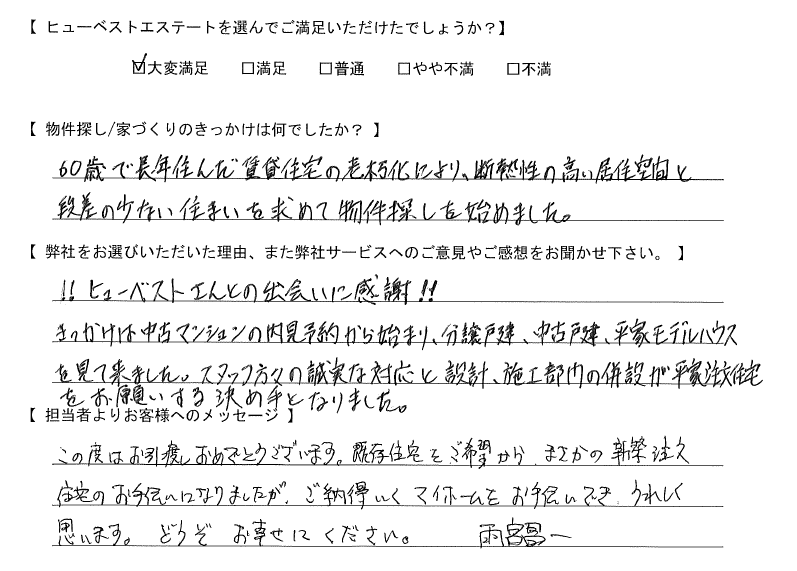 【 ヒューベストエステートを選んでご満足いただけたでしょうか？】
☑大変満足 □満足 □普通 □やや不満 □不満
【 物件探し/家づくりのきっかけは何でしたか？ 】
60歳で長年住んだ賃貸住宅の老朽化により、断熱性の高い居住空間と
段差の少ない住まいを求めて物件探しを始めました。
【 弊社をお選びいただいた理由、また弊社サービスへのご意見やご感想をお聞かせ下さい。 】
!! ヒューベストさんとの出会いに感謝 !!
きっかけは中古マンションの内見予約から始まり、分譲戸建、中古戸建、平家モデルハウス
を見て来ました。スタッフ方々の誠実な対応と設計、施工部内の併設が平家注文住宅
をお願いする決め手となりました。
【 担当者よりお客様へのメッセージ 】
この度はお引渡しおめでとうございます。既存住宅をご希望から、まさかの新築注文
住宅のお手伝いになりましたが、ご納得いくマイホームをお手伝いでき、うれしく
思います。どうぞ お幸せにください。 雨宮昌一